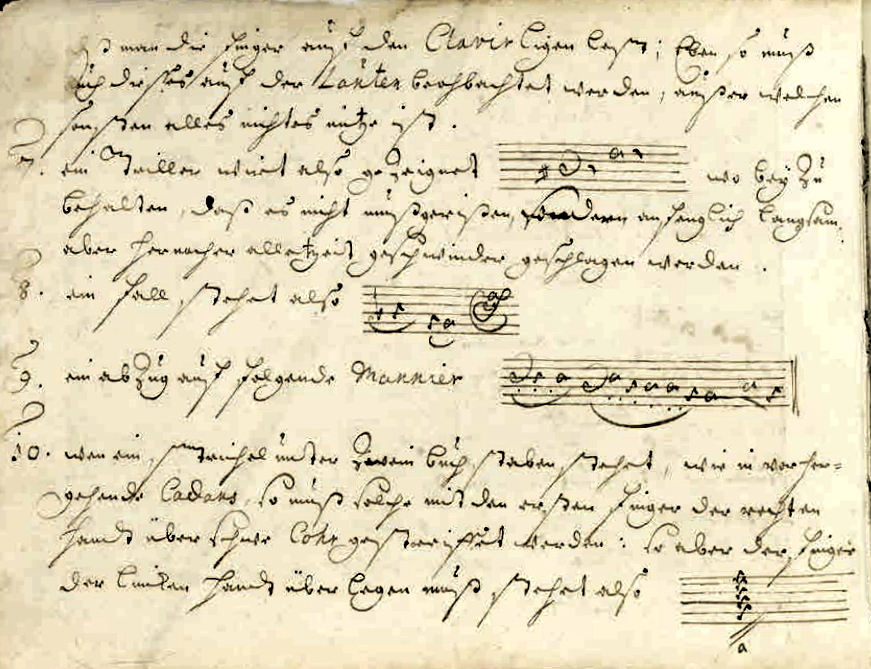 man die finger auff den Clavir ligen lest; Eben so muß
auch dieses auff der Lauten beobachtet werden, ausser welchen
sonsten alles nichts nutze ist.
7. ein Triller wirt also gezeignet wo bey zu
behalten, daß es nicht außgerissen, sondern anfenglich langsam,
aber hernacher allezeit geschwinder geschlagen werden.
8. ein fall stehet also
9. ein abzug auff folgende Mannier
10. wen ein strichel unter zwein buchstaben stehet, wie in vorher=
gehende Cadans, so muß solche mit den ersten finger der rechten
handt über gestreiffet werden: so aber der finger
der lincken handt über legen muß stehet also
a